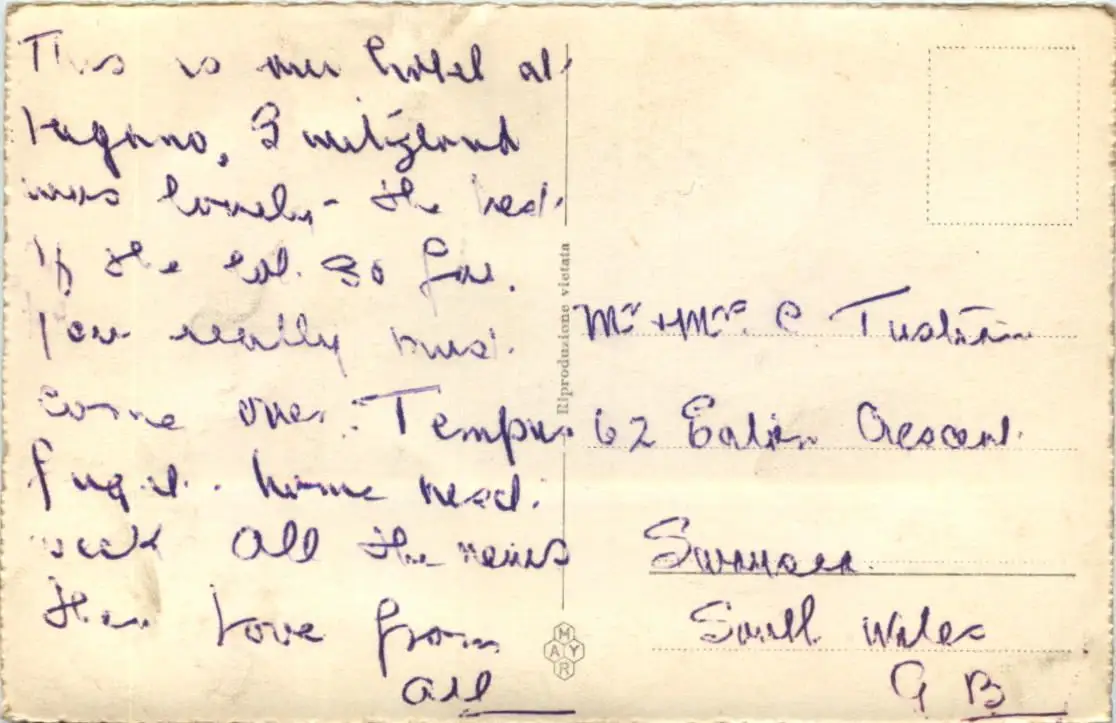 This is our hotel at
Lugano, Switzland
was lovely - the best
of the lot. So far.
You really must
come over. Tempus
fugit. home next
week All the news
then Love from
All
Riproduzione vietata
MAYR
Mr + Mrs. C Tustin
62 Eaton Crescent.
Swansea.
South Wales
G B